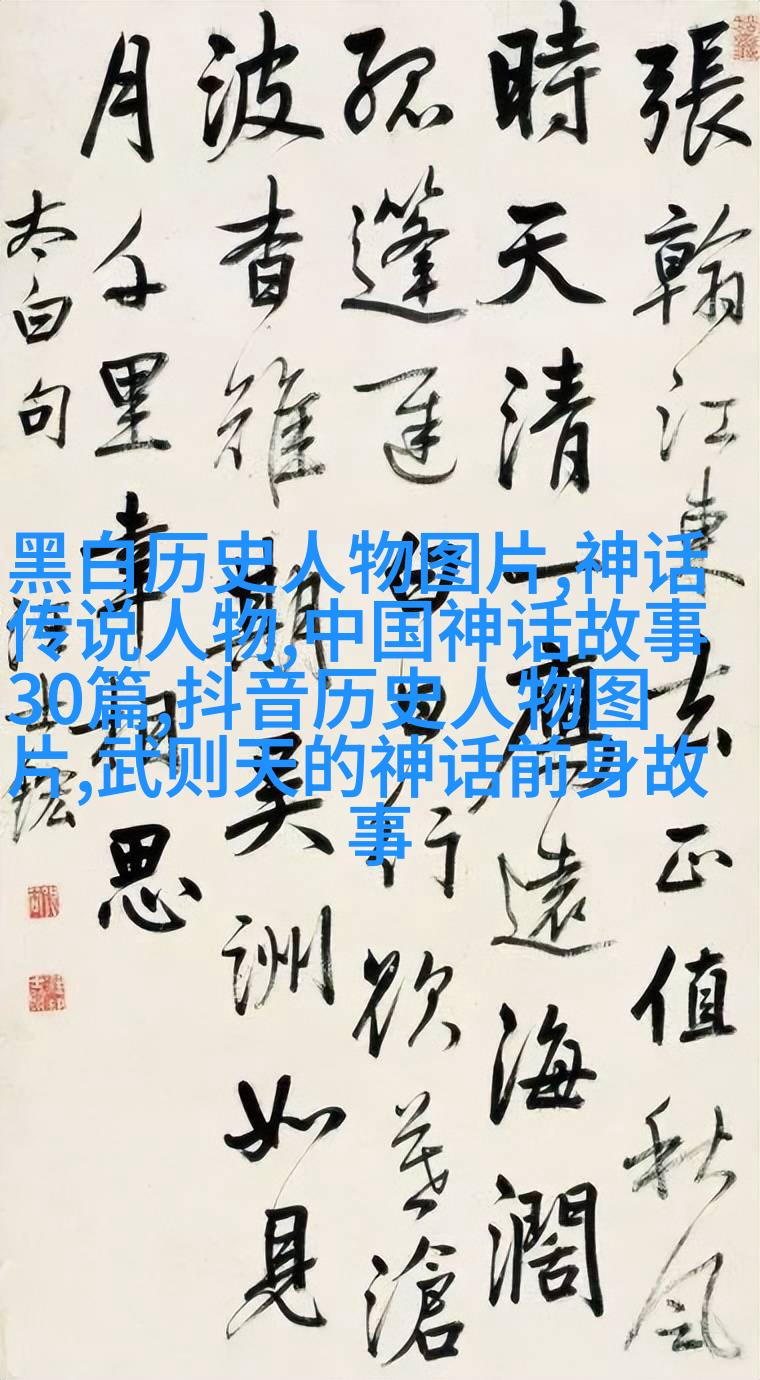 張翰江東去正值秋風
時天清一鴈遠海闊
孤篷遲白日行欲暮滄
波杳難期吳洲如見
月千里幸相思
太白句
黑白历史人物图片,神话
传说人物,中国神话故事
30篇,抖音历史人物图
片,武则天的神话前身故
事